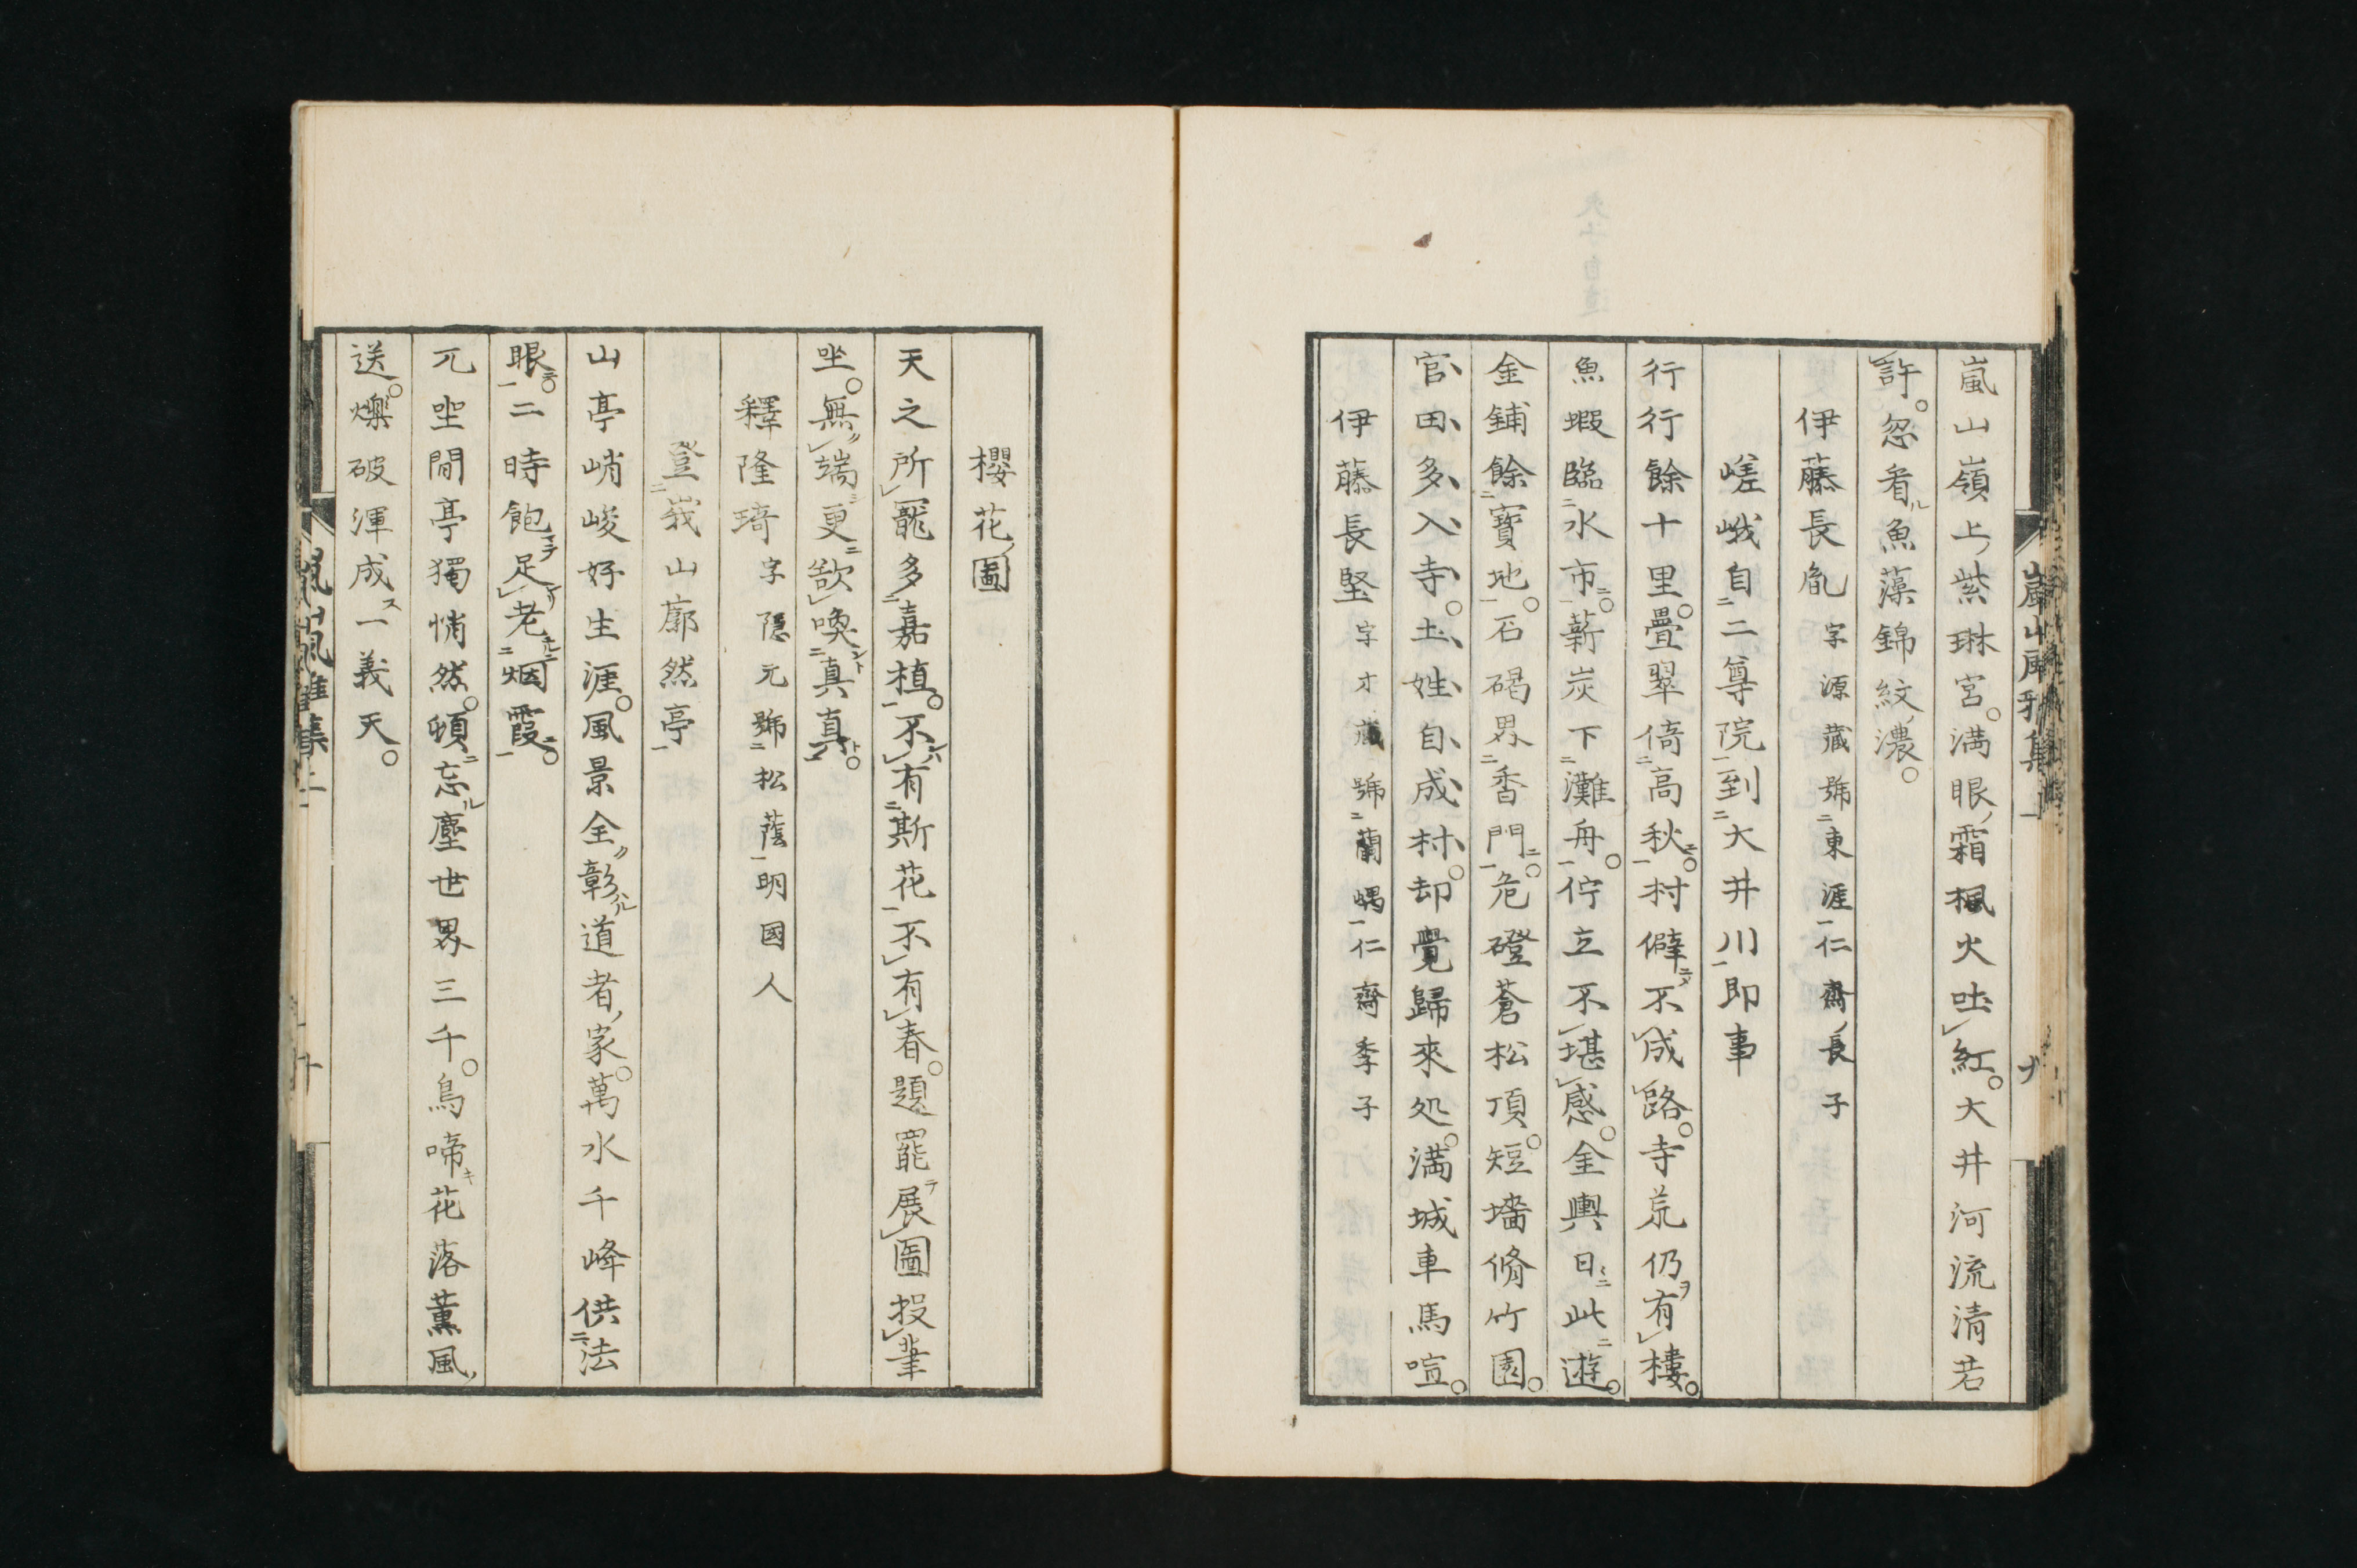 嵐山嶺上紫琳宮。満眼霜楓火吐紅。大井河流清若
許。忽看魚藻錦紋濃。
伊藤長胤 字源藏號東涯仁齋長子
嵯峨自二尊院到大井川即事
行行餘十里。疊翠倚高秋。村僻不成路。寺荒仍有樓。
魚蝦臨水市。薪炭下灘舟。佇立不堪感。金輿日此遊。
金鋪餘寶地。石碣界香門。危磴蒼松頂。短墻脩竹園。
官田多入寺。土姓自成村。却覺歸來処。満城車馬喧。
伊藤長堅 字才藏號蘭嵎仁齋季子
櫻花圖
天之所寵多嘉植。不有斯花不有春。題罷展圖投筆
坐。無端更欲喚真真。
釋隆琦 字隱元號松蔭明國人
登峩山廓然亭
山亭峭峻好生涯。風景全彰道者家。萬水千峰供法
眼。二時飽足老烟霞。
兀坐閒亭獨悄然。頓忘塵世界三千。鳥啼花落薰風
送。爍破渾成一義天。